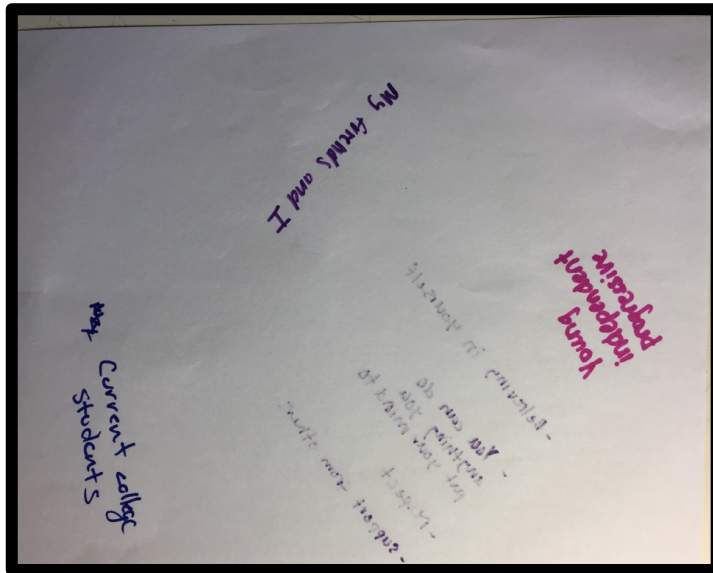 My friends and I
young
independent
progressive
- believing in yourself
- you can do
anything you
put your mind to
- respect
- support from others
Current college
students